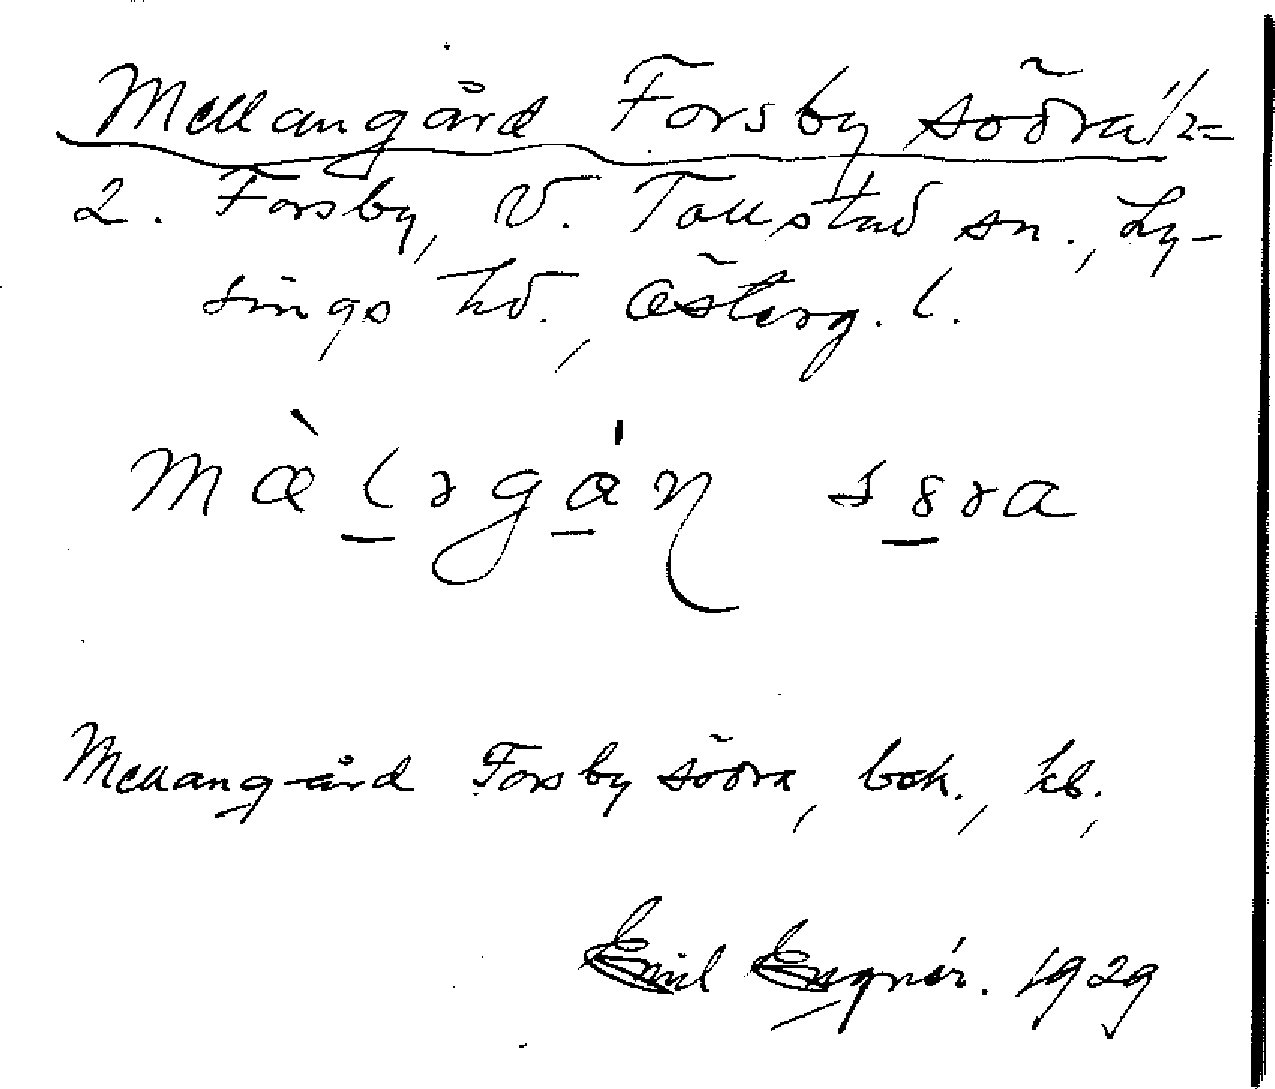 Mellangård Forsby södra 1/2=
2. Forsby, V. Tollstad sn., Ly-
sings hd., Österg. l.
mæ̀lǝgán sɵra
Mellangård Forsby södra, bok., kb.,
Emil Engnér. 1929